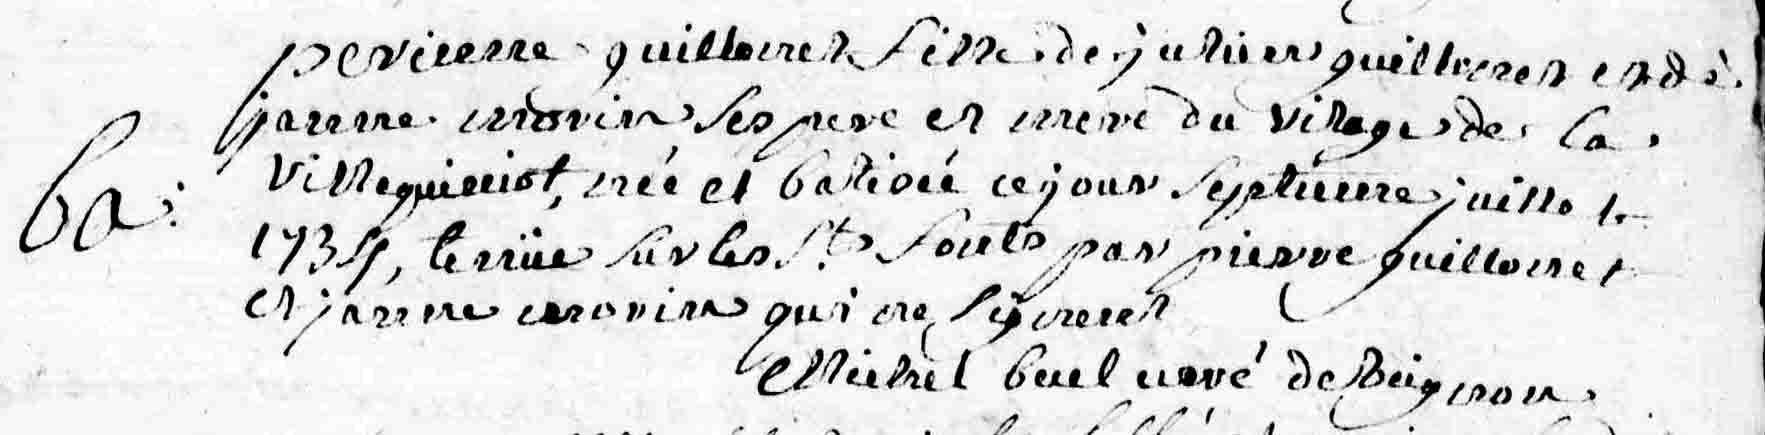 perrienne guillouet fille de julien guillouet et de
janne morin ses pere et mere du village de la
Villeguiniot, née et batisée ce jour septieme juillet
ba:
1734, tenüe sur les Sts fonts par pierre guillouet
et janne morin qui ne signent
Michel buel curé de Beignon